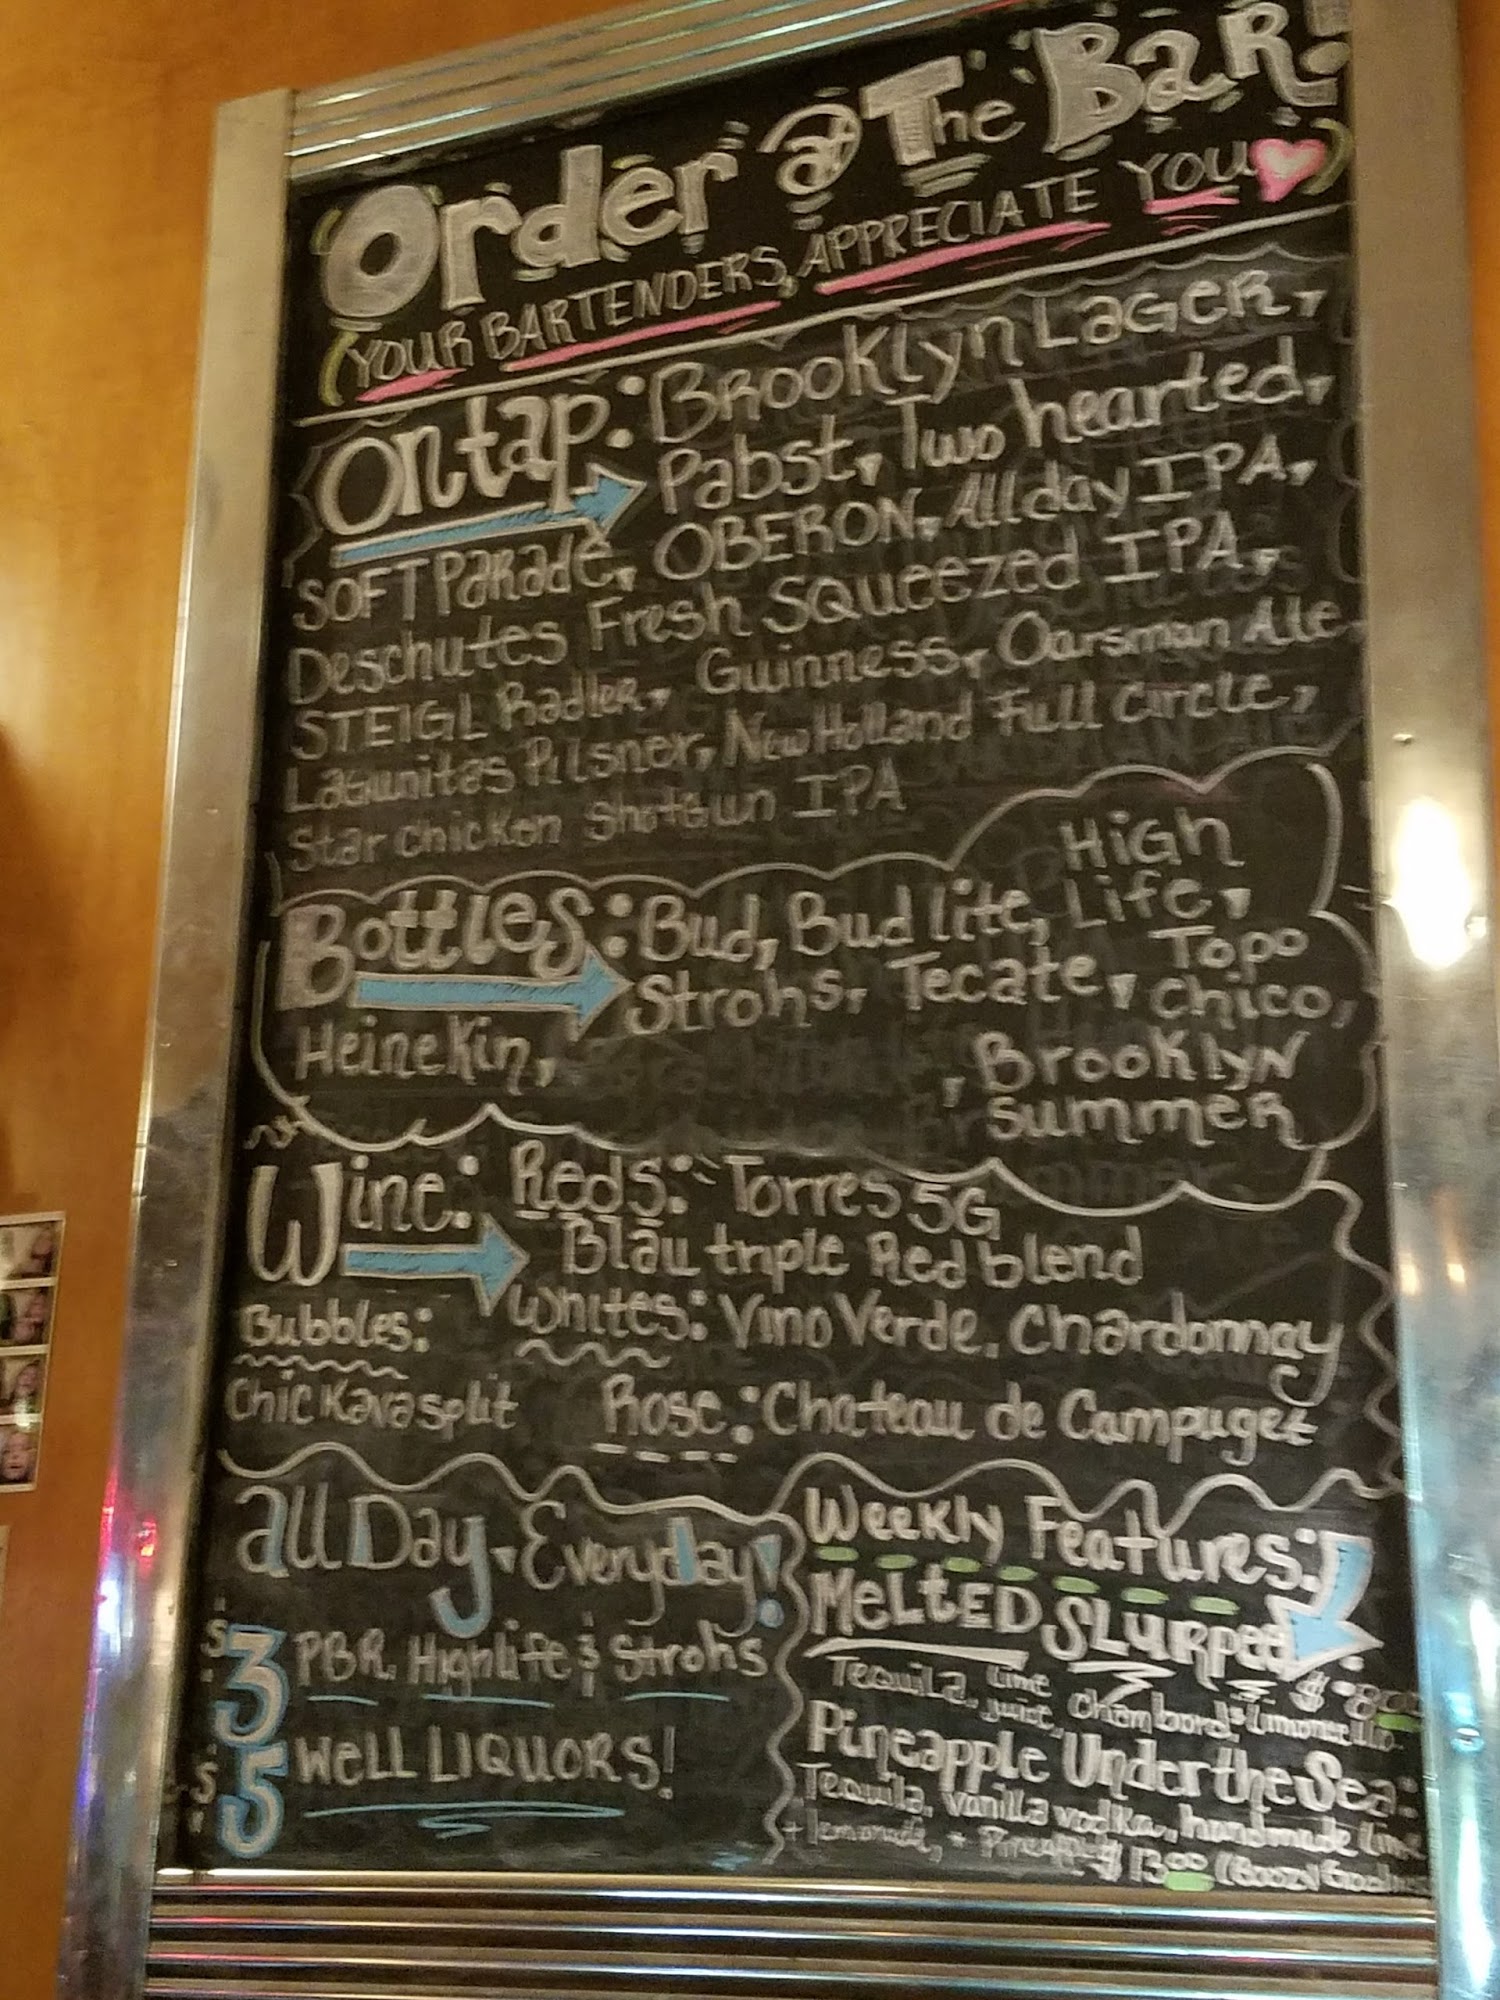 Order @ The Bar!
(YOUR BARTENDERS, APPRECIATE YOU)
On tap: Brooklyn Lager,
Pabst, Two hearted,
SOFT Parade, OBERON, All day IPA,
Deschutes Fresh Squeezed IPA,
STEIGL Radler, Guinness, Oarsman Ale
Lagunitas Pilsner, New Holland Full Circle,
Star chicken Shotgun IPA
Bottles: Bud, Bud lite, High Life,
Strohs, Tecate, Topo chico,
Heinekin, , Brooklyn summer
Wine: Reds: Torres 5G
Blau triple Red blend
Whites: Vino Verde, Chardonnay
Bubbles:
Chic Kava split Rose: Chateau de Campuget
all Day, Everyday!
$3 PBR, Highlife & Strohs
$5 Well LIQUORS!
Weekly Features:
MeLtED SLURPee: $8.00
Tequila, lime juice, chambord, limoncello
Pineapple Under the Sea:
Tequila, vanilla vodka, handmade lime
+ lemonade, + Pineapple $13.00 (Boozy